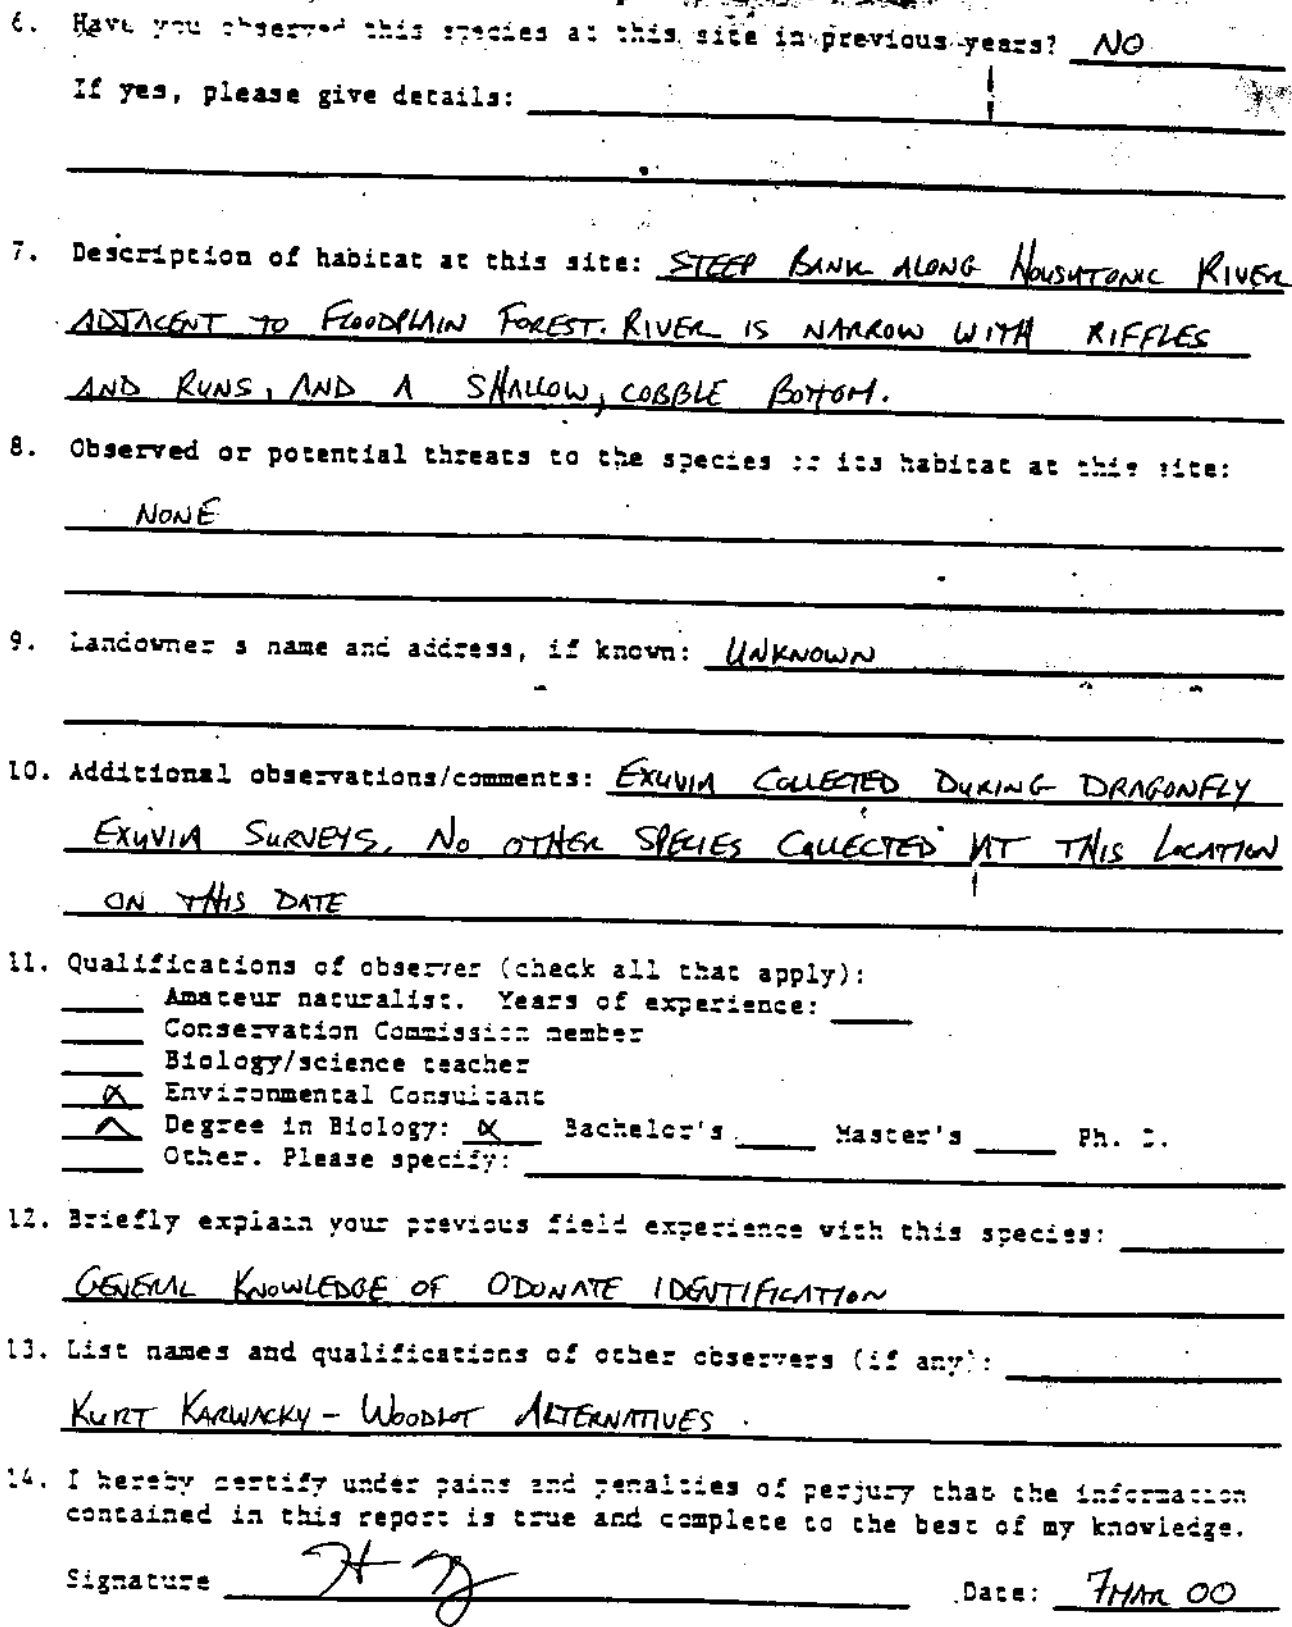 6. Have you observed this species at this site in previous years? NO
If yes, please give details:
7. Description of habitat at this site: STEEP BANK ALONG HOUSATONIC RIVER
ADJACENT TO FLOODPLAIN FOREST. RIVER IS NARROW WITH RIFFLES
AND RUNS, AND A SHALLOW, COBBLE BOTTOM.
8. Observed or potential threats to the species or its habitat at this site:
NONE
9. Landowner s name and address, if known: UNKNOWN
10. Additional observations/comments: EXUVIA COLLECTED DURING DRAGONFLY
EXUVIA SURVEYS. NO OTHER SPECIES COLLECTED AT THIS LOCATION
ON THIS DATE
11. Qualifications of observer (check all that apply):
Amateur naturalist. Years of experience:
Conservation Commission member
Biology/science teacher
X Environmental Consultant
X Degree in Biology: X Bachelor's Master's Ph. D.
Other. Please specify:
12. Briefly explain your previous field experience with this species:
GENERAL KNOWLEDGE OF ODONATE IDENTIFICATION
13. List names and qualifications of other observers (if any):
KURT KARWACKY - WOODLOT ALTERNATIVES
14. I hereby certify under pains and penalties of perjury that the information
contained in this report is true and complete to the best of my knowledge.
Signature Date: 7 MAR 00